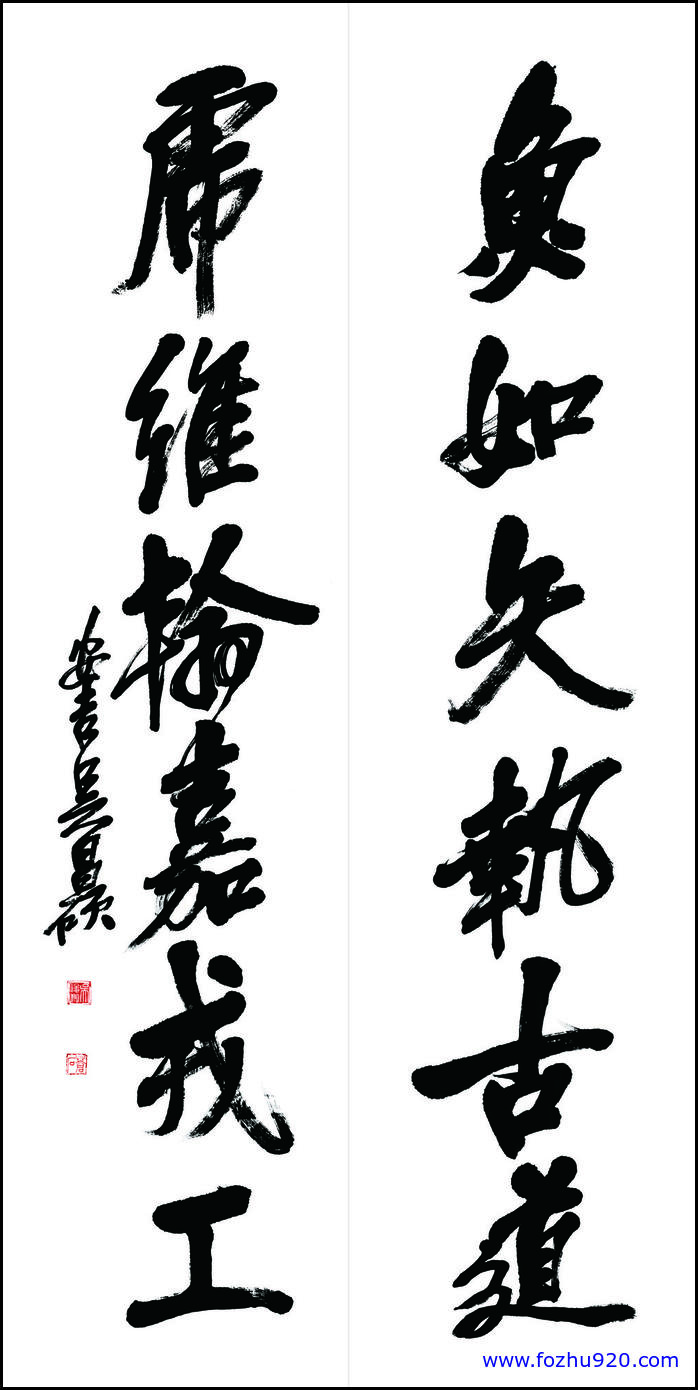 魚如矢執古道
虎維翰嘉戎工
安吉吳昌碩
www.fozhu920.com